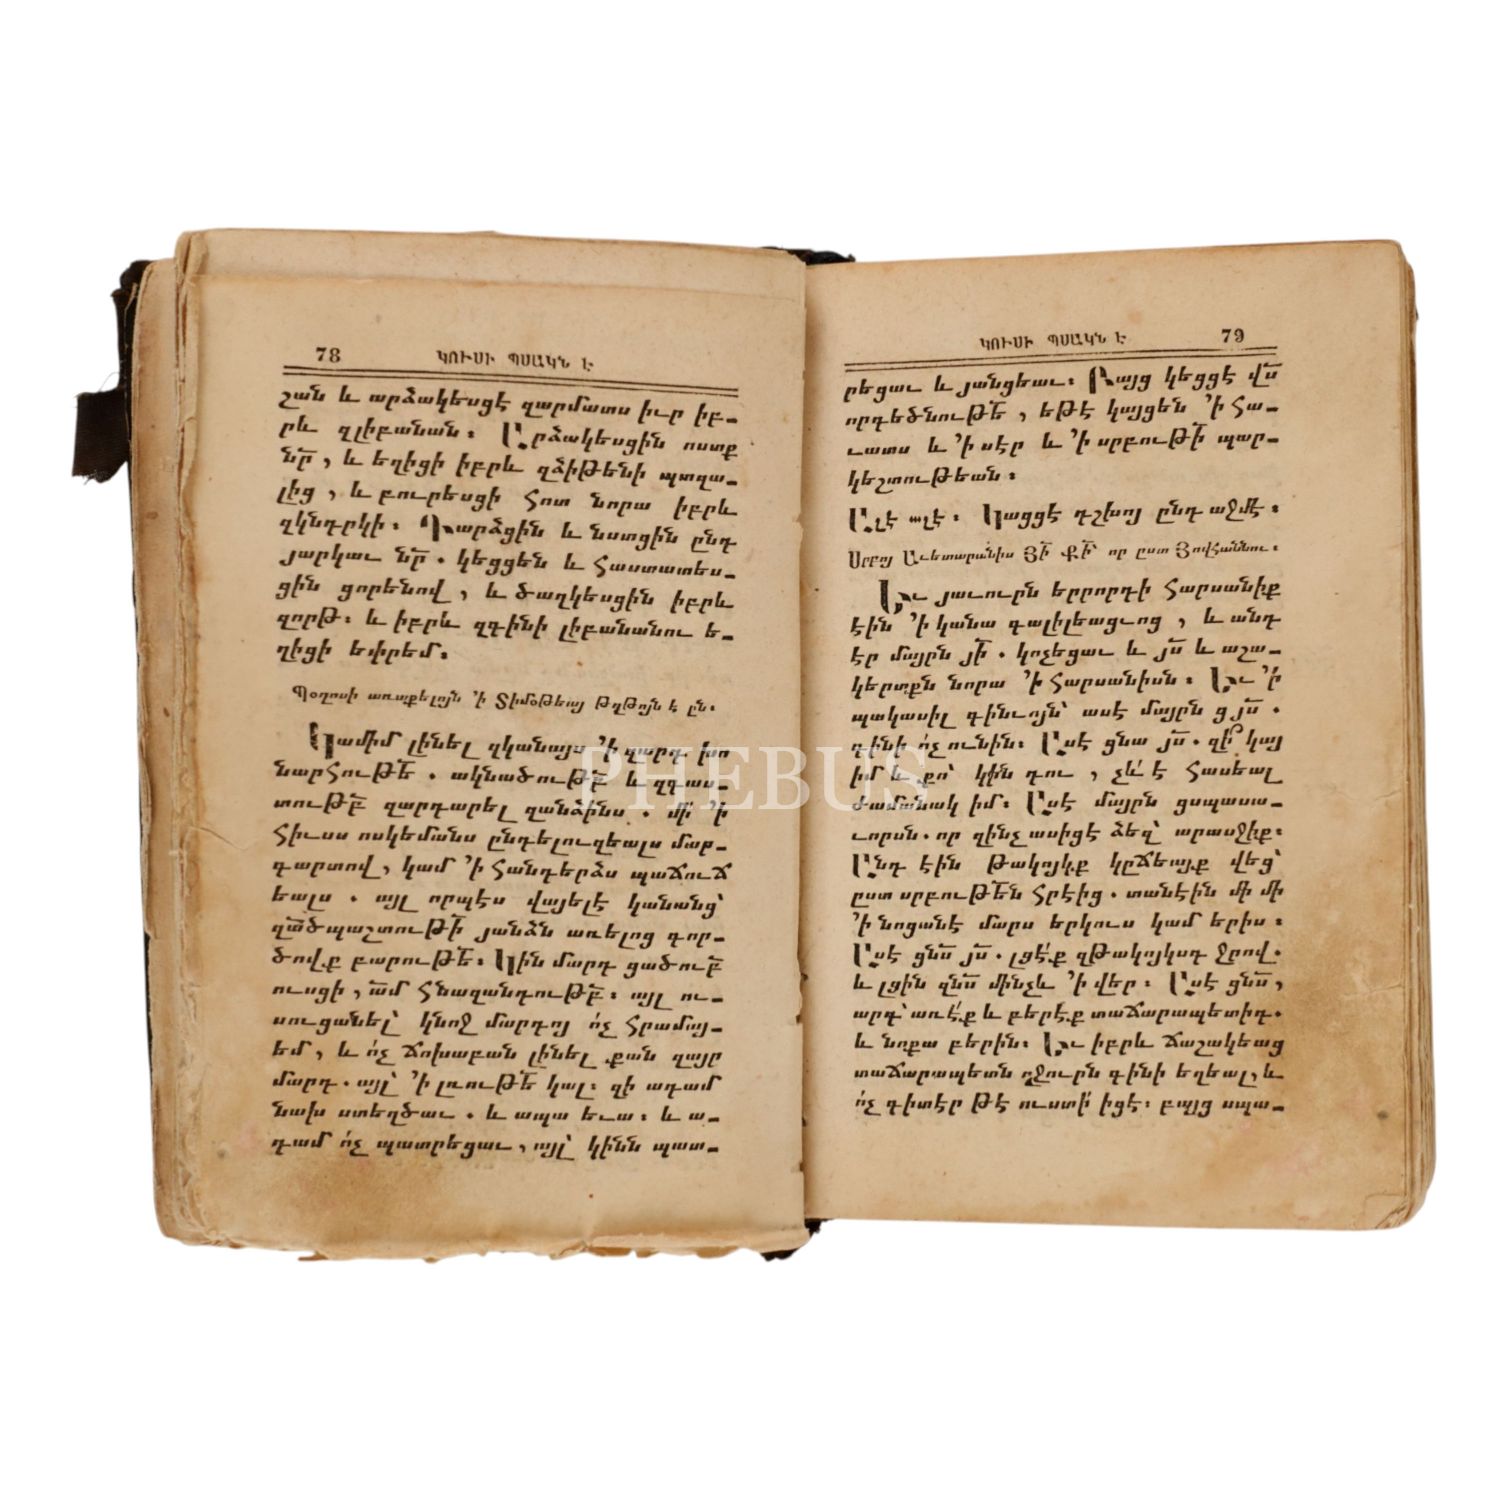 78 ԿՈՒՍԻ ՊՍԱԿՆ Է
շան և արձակեսցէ զարմատս իւր իբ֊
րև զլիբանան։ Արձակեսցին ոստք
նր̅, և եղիցի իբրև զձիթենի պտղա֊
լից, և բուրեսցի հոտ նորա իբրև
զկնդրկի։ Դարձցին և նստցին ընդ
յարկաւ նր̅. կեցցեն և հաստատես֊
ցին ցորենով, և ծաղկեսցին իբրև
զորթ։ և իբրև զգինի լիբանանու ե֊
ղիցի եփրեմ։
Պօղոսի առաքելոյն ՚ի Տիմօթեայ թղթոյն է ըն։
Կամիմ լինել զկանայս ՚ի զարդ խո
նարհութե̅. ակնածութբ̅ և զգաս֊
տութբ̅ զարդարել զանձինս. մի՛ ՚ի
հիւսս ոսկեմանս ընդելուզեալս մար֊
գարտով, կամ ՚ի հանդերձս պաճուճ
եալս. այլ որպէս վայելէ կանանց՝
զա̅ծպաշտութի̅ յանձն առելոց գոր֊
ծովք բարութե̅։ Կին մարդ ցածութբ̅
ուսցի, ա̅մ հնազանդութբ̅։ այլ ու֊
սուցանել՝ կնոջ մարդոյ ո՛չ հրամայ֊
եմ, և ո՛չ ճոխաբան լինել քան զայր
մարդ. այլ՝ ՚ի լռութե̅ կալ։ զի ադամ
նախ ստեղծաւ. և ապա եւա։ և ա֊
դամ ո՛չ պատրեցաւ, այլ՝ կինն պատ֊
ԿՈՒՍԻ ՊՍԱԿՆ Է 79
րեցաւ և յանցեաւ։ Բայց կեցցէ վս̅
որդեծնութե̅, եթէ կայցեն ՚ի հա֊
ւատս և ՚ի սէր և ՚ի սրբութի̅ պար֊
կեշտութեան։
Ալէ ալէ։ Կացցէ դշխոյ ընդ աջմէ։
Սրբոյ Աւետարանիս Յի̅ Քի̅ որ ըստ Յովհաննու։
Եւ յաւուրն երրորդի հարսանիք
էին ՚ի կանա գալիլեացւոց, և անդ
էր մայրն յի̅. կոչեցաւ և յս̅ և աշա֊
կերտքն նորա ՚ի հարսանիսն։ Եւ ՚ի
պակասիլ գինւոյն՝ ասէ մայրն ցյս̅.
գինի ո՛չ ունին։ Ասէ ցնա յս̅. զի՞ կայ
իմ և քո՝ կին դու, չև՛ է հասեալ
ժամանակ իմ։ Ասէ մայրն ցսպասա֊
ւորսն. որ զինչ ասիցէ ձեզ՝ արասջիք։
Անդ էին թակոյկք կըճեայք վեց՝
ըստ սրբութե̅ն հրէից. տանէին մի մի
՚ի նոցանէ մարս երկուս կամ երիս։
Ասէ ցնս̅ յս̅. լցէ՛ք զթակոյկսդ ջրով.
և լցին զնս̅ մինչև ՚ի վեր։ Ասէ ցնս̅,
արդ՝ առէ՛ք և բերէք տաճարապետիդ.
և նոքա բերին։ Եւ իբրև ճաշակեաց
տաճարապետն զջուրն գինի եղեալ, և
ո՛չ գիտէր թէ ուստի՛ իցէ։ բայց սպա֊
PHEBUS